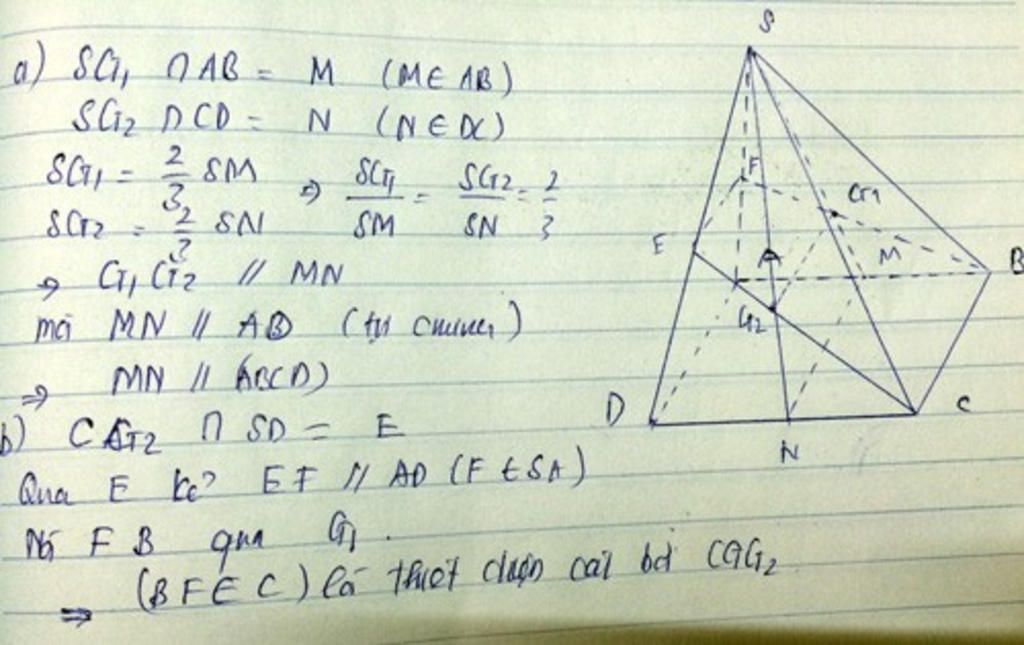 a) SG₁ ∩ AB = M (M ∈ AB)
SG₂ ∩ CD = N (N ∈ DC)
SG₁ = 2/3 SM ⇒ SG₁/SM = SG₂/SN = 2/3
SG₂ = 2/3 SN
⇒ G₁G₂ // MN
mà MN // AD (tự chứng)
⇒ MN // (ABCD)
b) CG₂ ∩ SD = E
Qua E kẻ EF // AD (F ∈ SA)
Nối FB qua G₁.
⇒ (BFEC) là thiết diện cắt bởi CGG₂
S
F
G₁
E
A
M
B
G₂
D
C
N